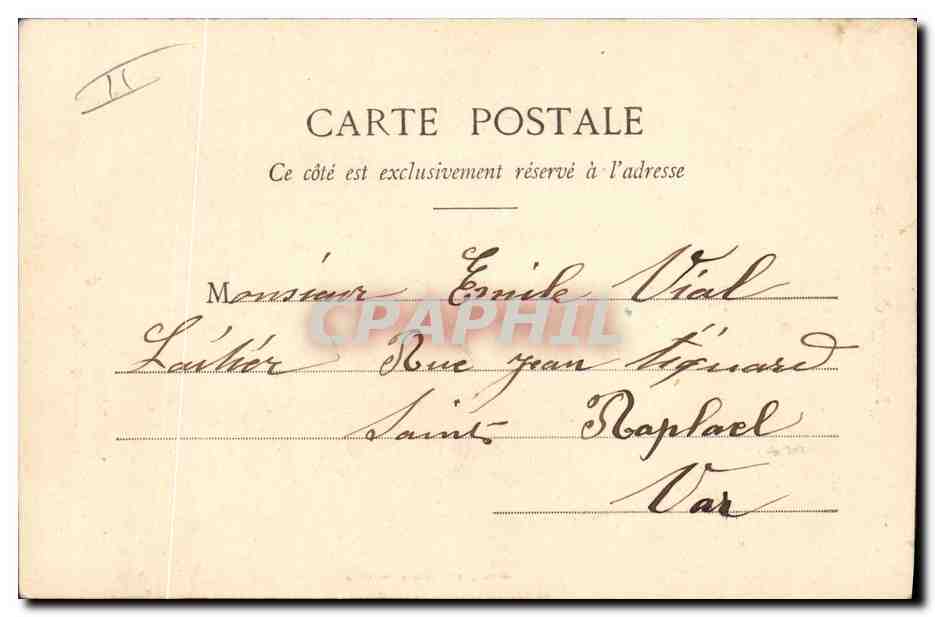 11
CARTE POSTALE
Ce côté est exclusivement réservé à l'adresse
Monsieur Emile Vial
CPAPHIL
Laitier Rue jean
Saint Raphael
Var